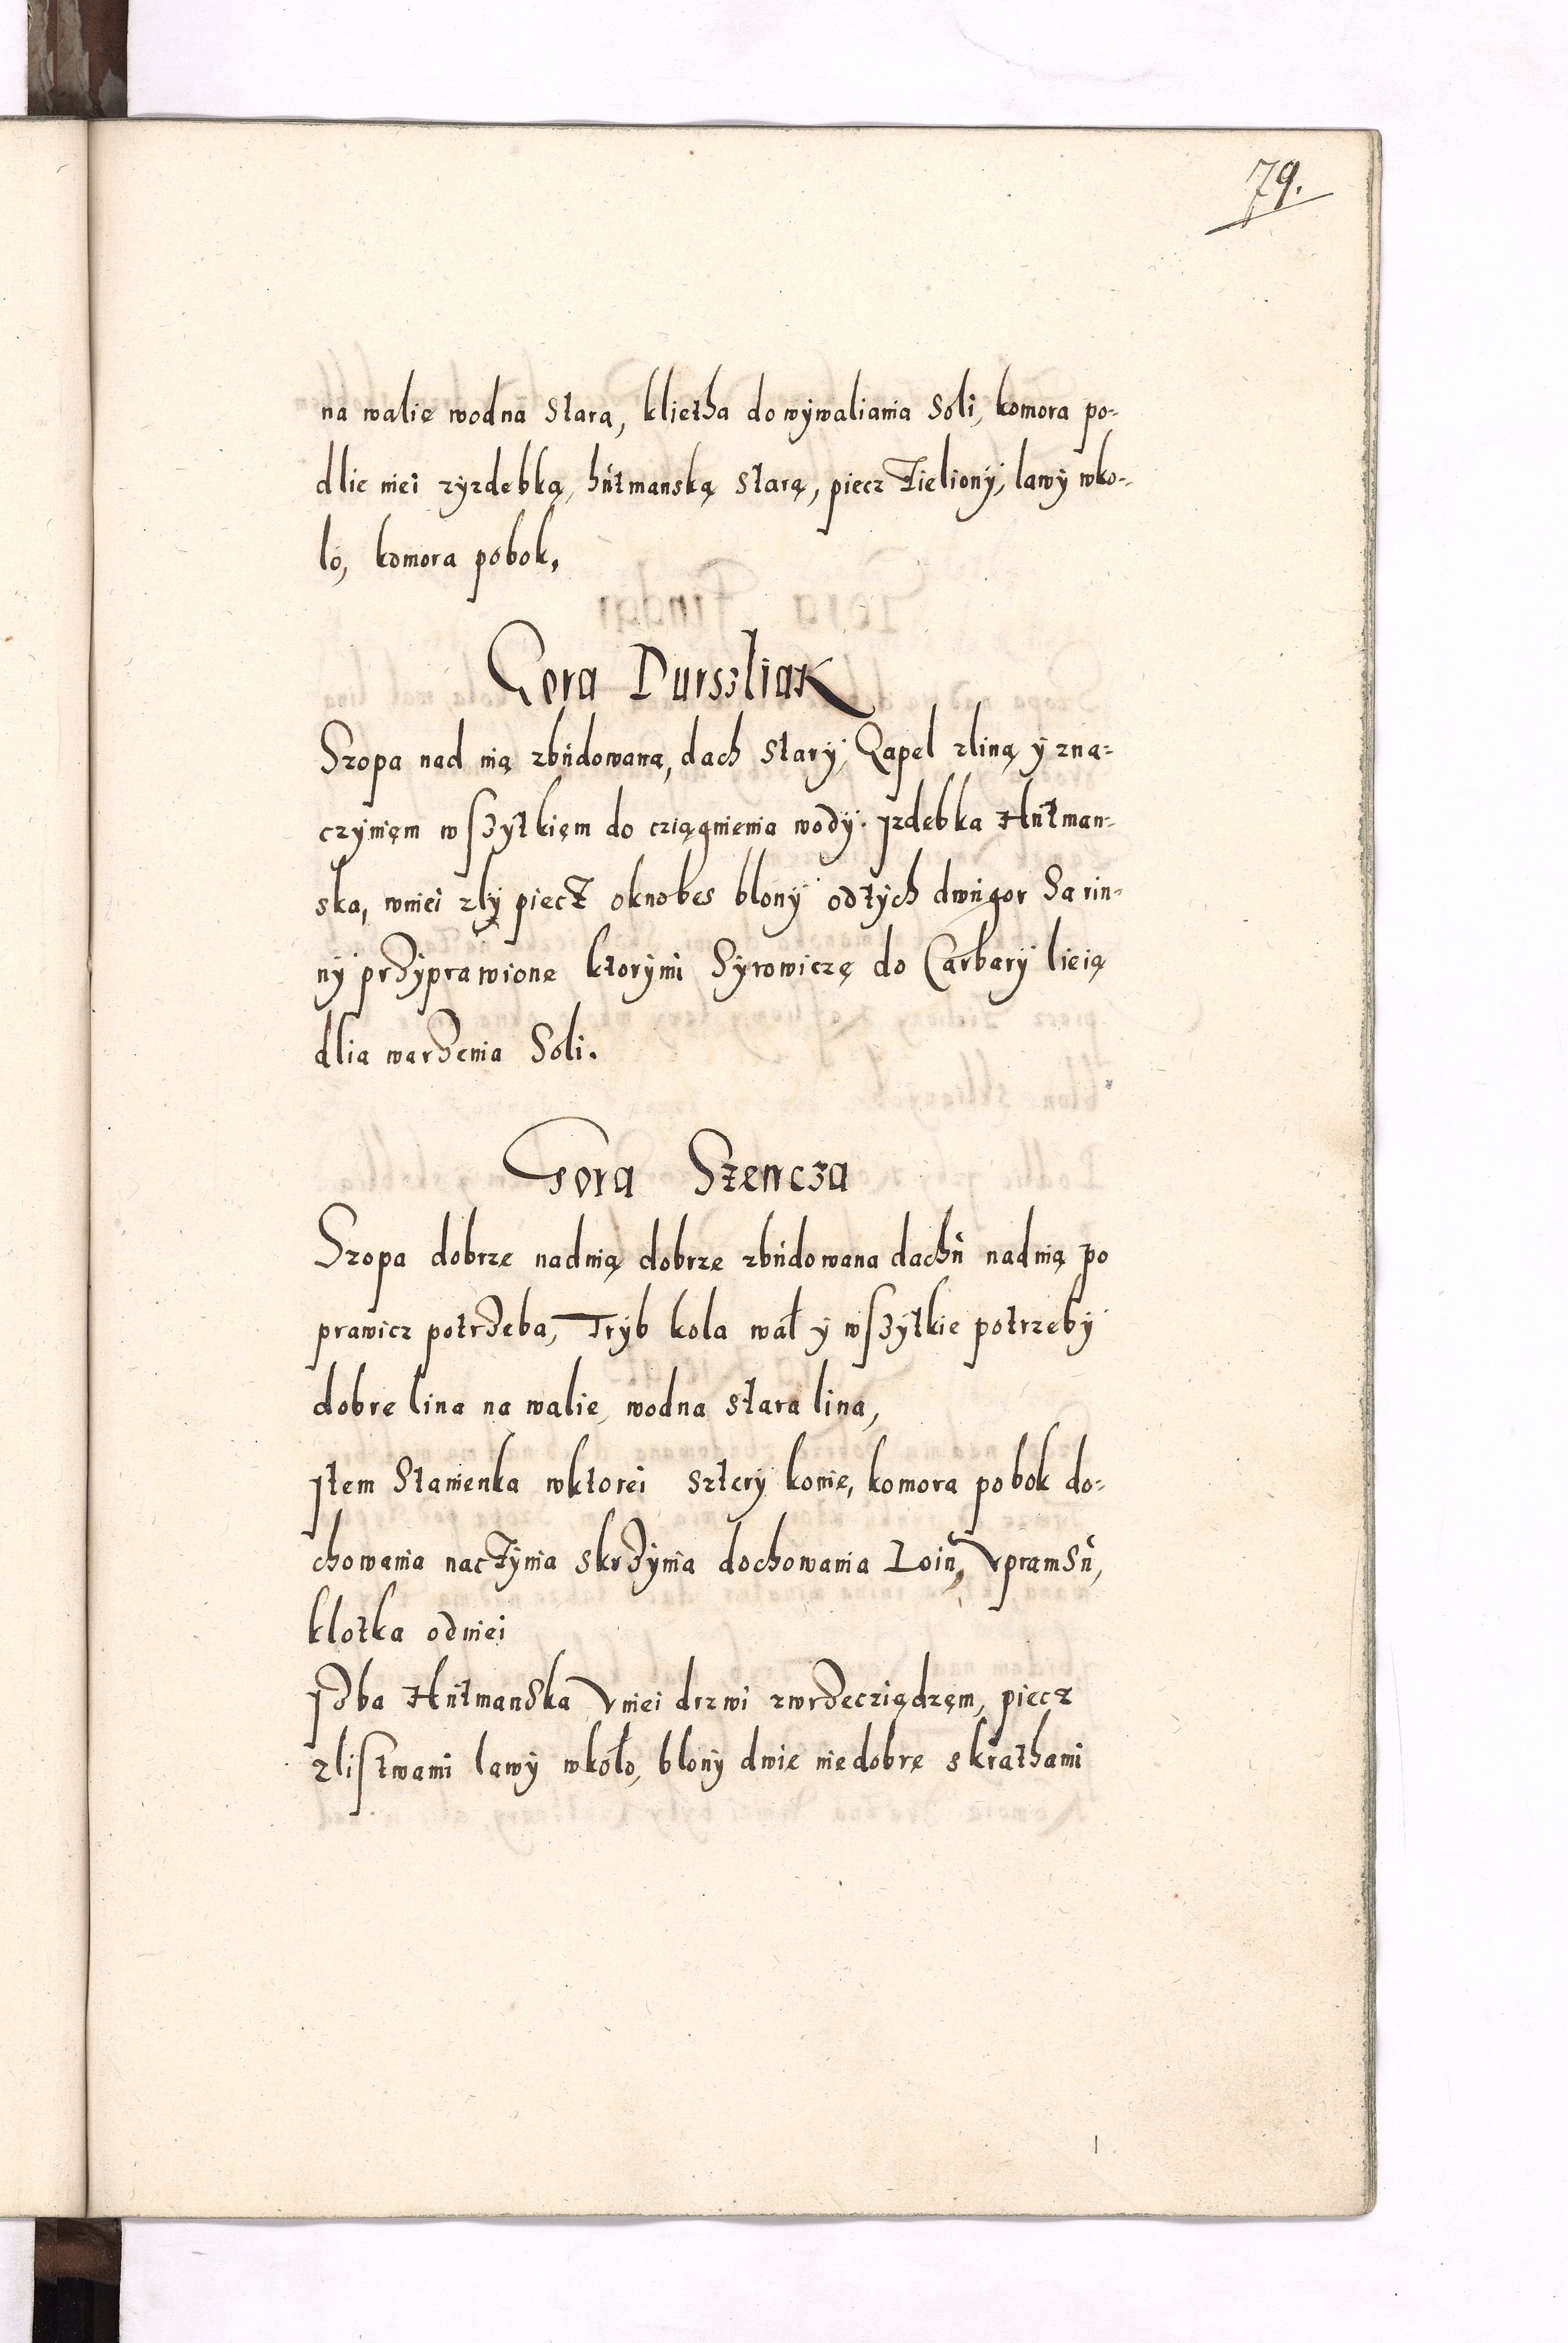 79.
na walie wodna stara, klietha do wÿwaliania soli, komora po-
dlie niei zyzdebką, hutmanską starą, piecz zielionÿ, lawÿ wko-
lo, komora pobok,
Gora Durszliak
Szopa nad nią zbudowana, dach starÿ, Qapel zliną ÿ zna-
czÿnięm wszytkięm do cziągnienia wodÿ. jzdebka Hutman-
ska, wniei zlÿ piecz oknobes blonÿ odtÿch dwugor Sa rin-
nÿ przÿprawione ktorÿmi Sÿrowiczę do Carbarÿ lieią
dlia warzenia Soli.
Gora Szewcza
Szopa dobrze nadnią dobrze zbudowana dachu nadnią po
prawicz potrzeba, Trÿb kola wał ÿ wszytkie potrzebÿ
dobre lina na walie, wodna stara lina,
jtem Stanienka wktorei szterÿ konie, komora pobok do-
chowania naczÿnia skrzÿnia dochowania Loiu, Vpramsu,
klotka odniei
jzba Hutmanska Vniei drzwi zwrzecziędzęm, piecz
zlistwami lawÿ wkoło, blonÿ dwie niedobrę skrathami